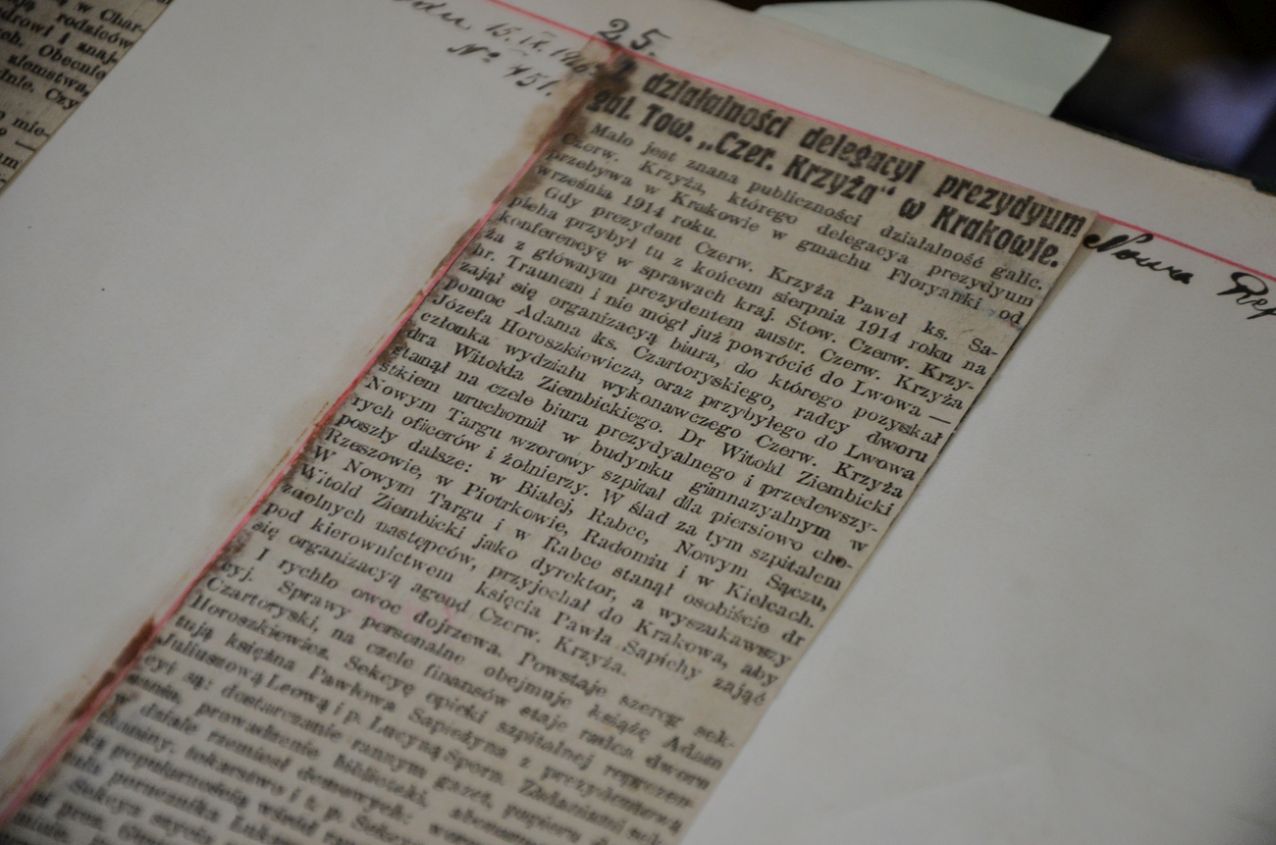 w Char-
rodziców
zdrowi i znaj-
Obecnie
ziemstwa,
Czy
mie-
15.IX.
25.
№ 451.
działalności delegacyi prezydyum
gal. Tow. „Czer. Krzyża" w Krakowie.
Nowa
Mało jest znana publiczności działalność galic.
Czerw. Krzyża, którego delegacya prezydyum
przebywa w Krakowie w gmachu Floryanki od
września 1914 roku.
Gdy prezydent Czerw. Krzyża Paweł ks. Sa-
pieha przybył tu z końcem sierpnia 1914 roku na
konferencyę w sprawach kraj. Stow. Czerw. Krzy-
ża z głównym prezydentem austr. Czerw. Krzyża
hr. Traunem i nie mógł już powrócić do Lwowa —
zajął się organizacyą biura, do którego pozyskał
pomoc Adama ks. Czartoryskiego, radcy dworu
Józefa Horoszkiewicza, oraz przybyłego do Lwowa
członka wydziału wykonawczego Czerw. Krzyża
dra Witolda Ziembickiego. Dr Witold Ziembicki
stanął na czele biura prezydyalnego i przedewszy-
stkiem uruchomił w budynku gimnazyalnym w
Nowym Targu wzorowy szpital dla piersiowo cho-
rych oficerów i żołnierzy. W ślad za tym szpitalem
poszły dalsze: w Białej, Rabce, Nowym Sączu,
Rzeszowie, w Piotrkowie, Radomiu i w Kielcach.
W Nowym Targu i w Rabce stanął osobiście dr
Witold Ziembicki jako dyrektor, a wyszukawszy
zdolnych następców, przyjechał do Krakowa, aby
pod kierownictwem księcia Pawła Sapiehy zająć
się organizacyą agend Czerw. Krzyża.
I rychło owoc dojrzewa. Powstaje szereg sek-
cyj. Sprawy personalne obejmuje książę Adam
Czartoryski, na czele finansów staje radca dworu
Horoszkiewicz. Sekcyę opieki szpitalnej reprezen-
tują księżna Pawłowa Sapieżyna z prezydentową
Juliuszową Leową i p. Lucyną Sporn. Zadaniami sek-
cyi są: dostarczanie rannym gazet, papieru do
prowadzenie biblioteki,
w dziale rzemiosł domowych:
tokarstwo i t. p.
popularnością wśród
Sekcya
porucznika